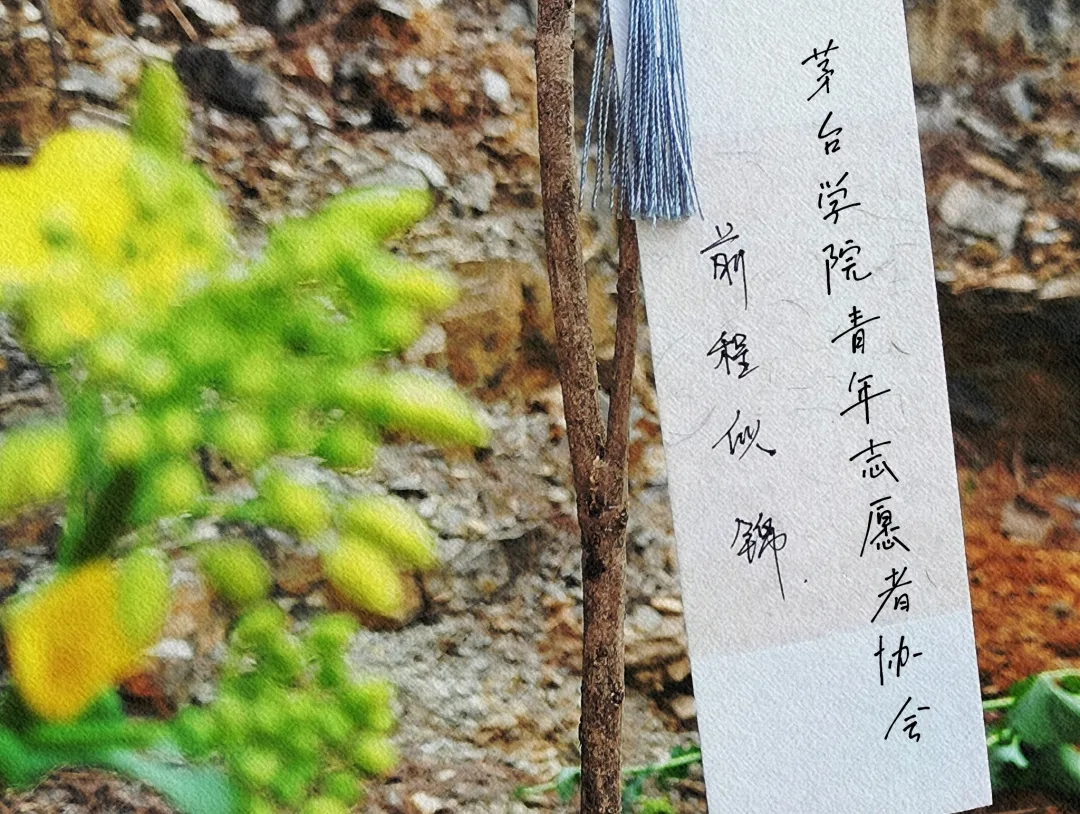 茅台学院青年志愿者协会
前程似锦.